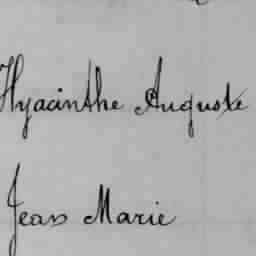 Hyacinthe Auguste
Jean Marie